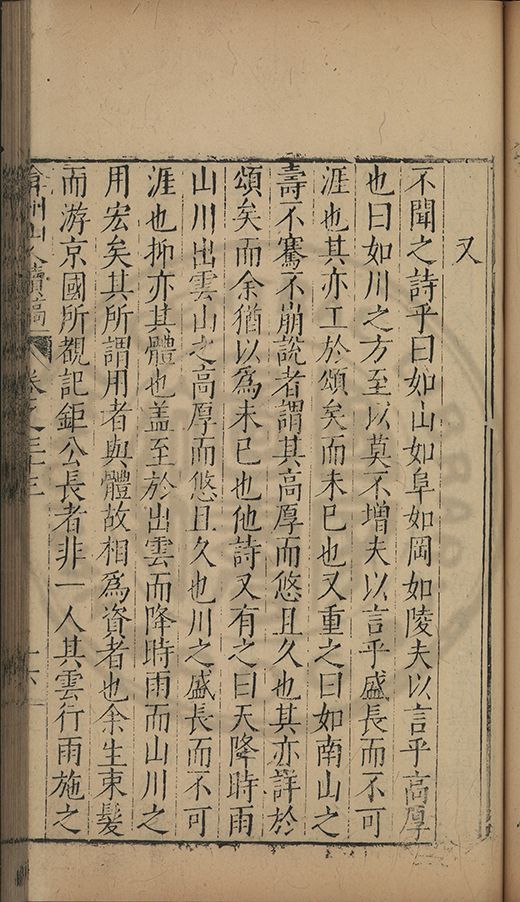 又
不聞之詩乎曰如山如阜如岡如陵夫以言乎高厚
也曰如川之方至以莫不增夫以言乎盛長而不可
涯也其亦工於頌矣而未已也又重之曰如南山之
壽不騫不崩說者謂其高厚而悠且久也其亦詳於
頌矣而余猶以爲未已也他詩又有之曰天降時雨
山川出雲山之高厚而悠且久也川之盛長而不可
涯也抑亦其體也盖至於出雲而降時雨而山川之
用宏矣其所謂用者與體故相爲資者也余生束髮
而游京國所覩記鉅公長者非一人其雲行雨施之
弇州山人續稿 卷之三十三